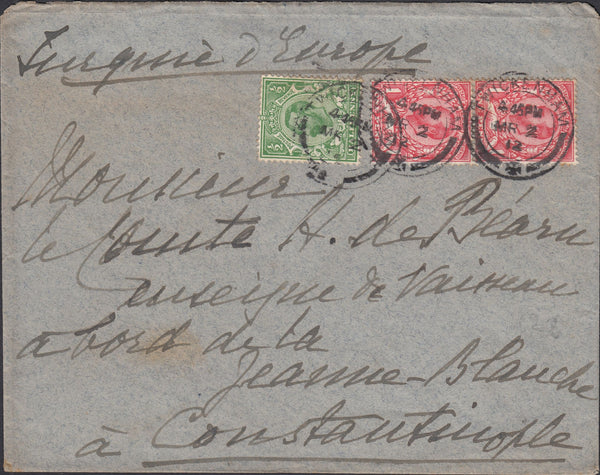 Turquie d'Europe
4.45PM
MR 2
12
4.45PM
MR 2
12
Monsieur
le Comte H. de Béarn
enseigne de Vaisseau
a bord de la
Jeanne-Blanche
à Constantinople